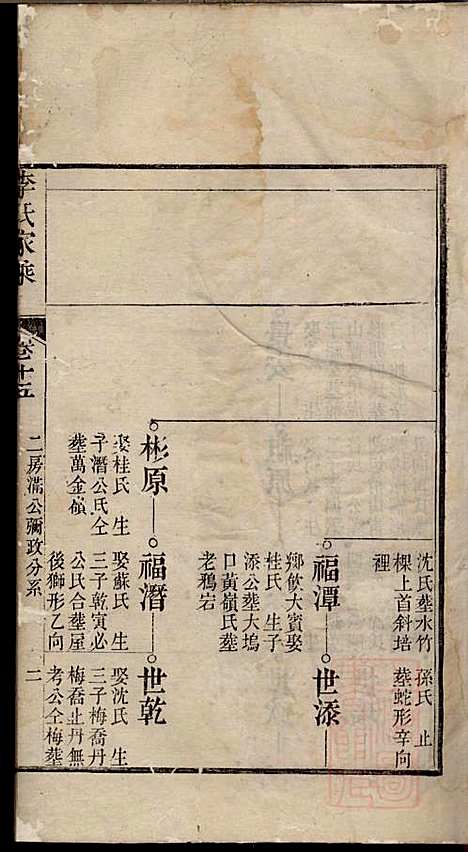 沈氏葬水竹
棵上首斜塝
裡
孫氏 止
葬蛇形辛向
福潭
鄉飲大賓娶
桂氏 生子
添公葬大塢
口黃嶺氏葬
老鴉岩
世添
彬原
娶桂氏 生
子潛公氏仝
葬萬金嶺
福潛
娶蘇氏 生
三子乾寅必
公氏合葬屋
後獅形乙向
世乾
娶沈氏 生
三子梅喬丹
梅喬止丹無
考公仝梅葬
李氏家乘
卷十五
二房滿公彌政分系
二